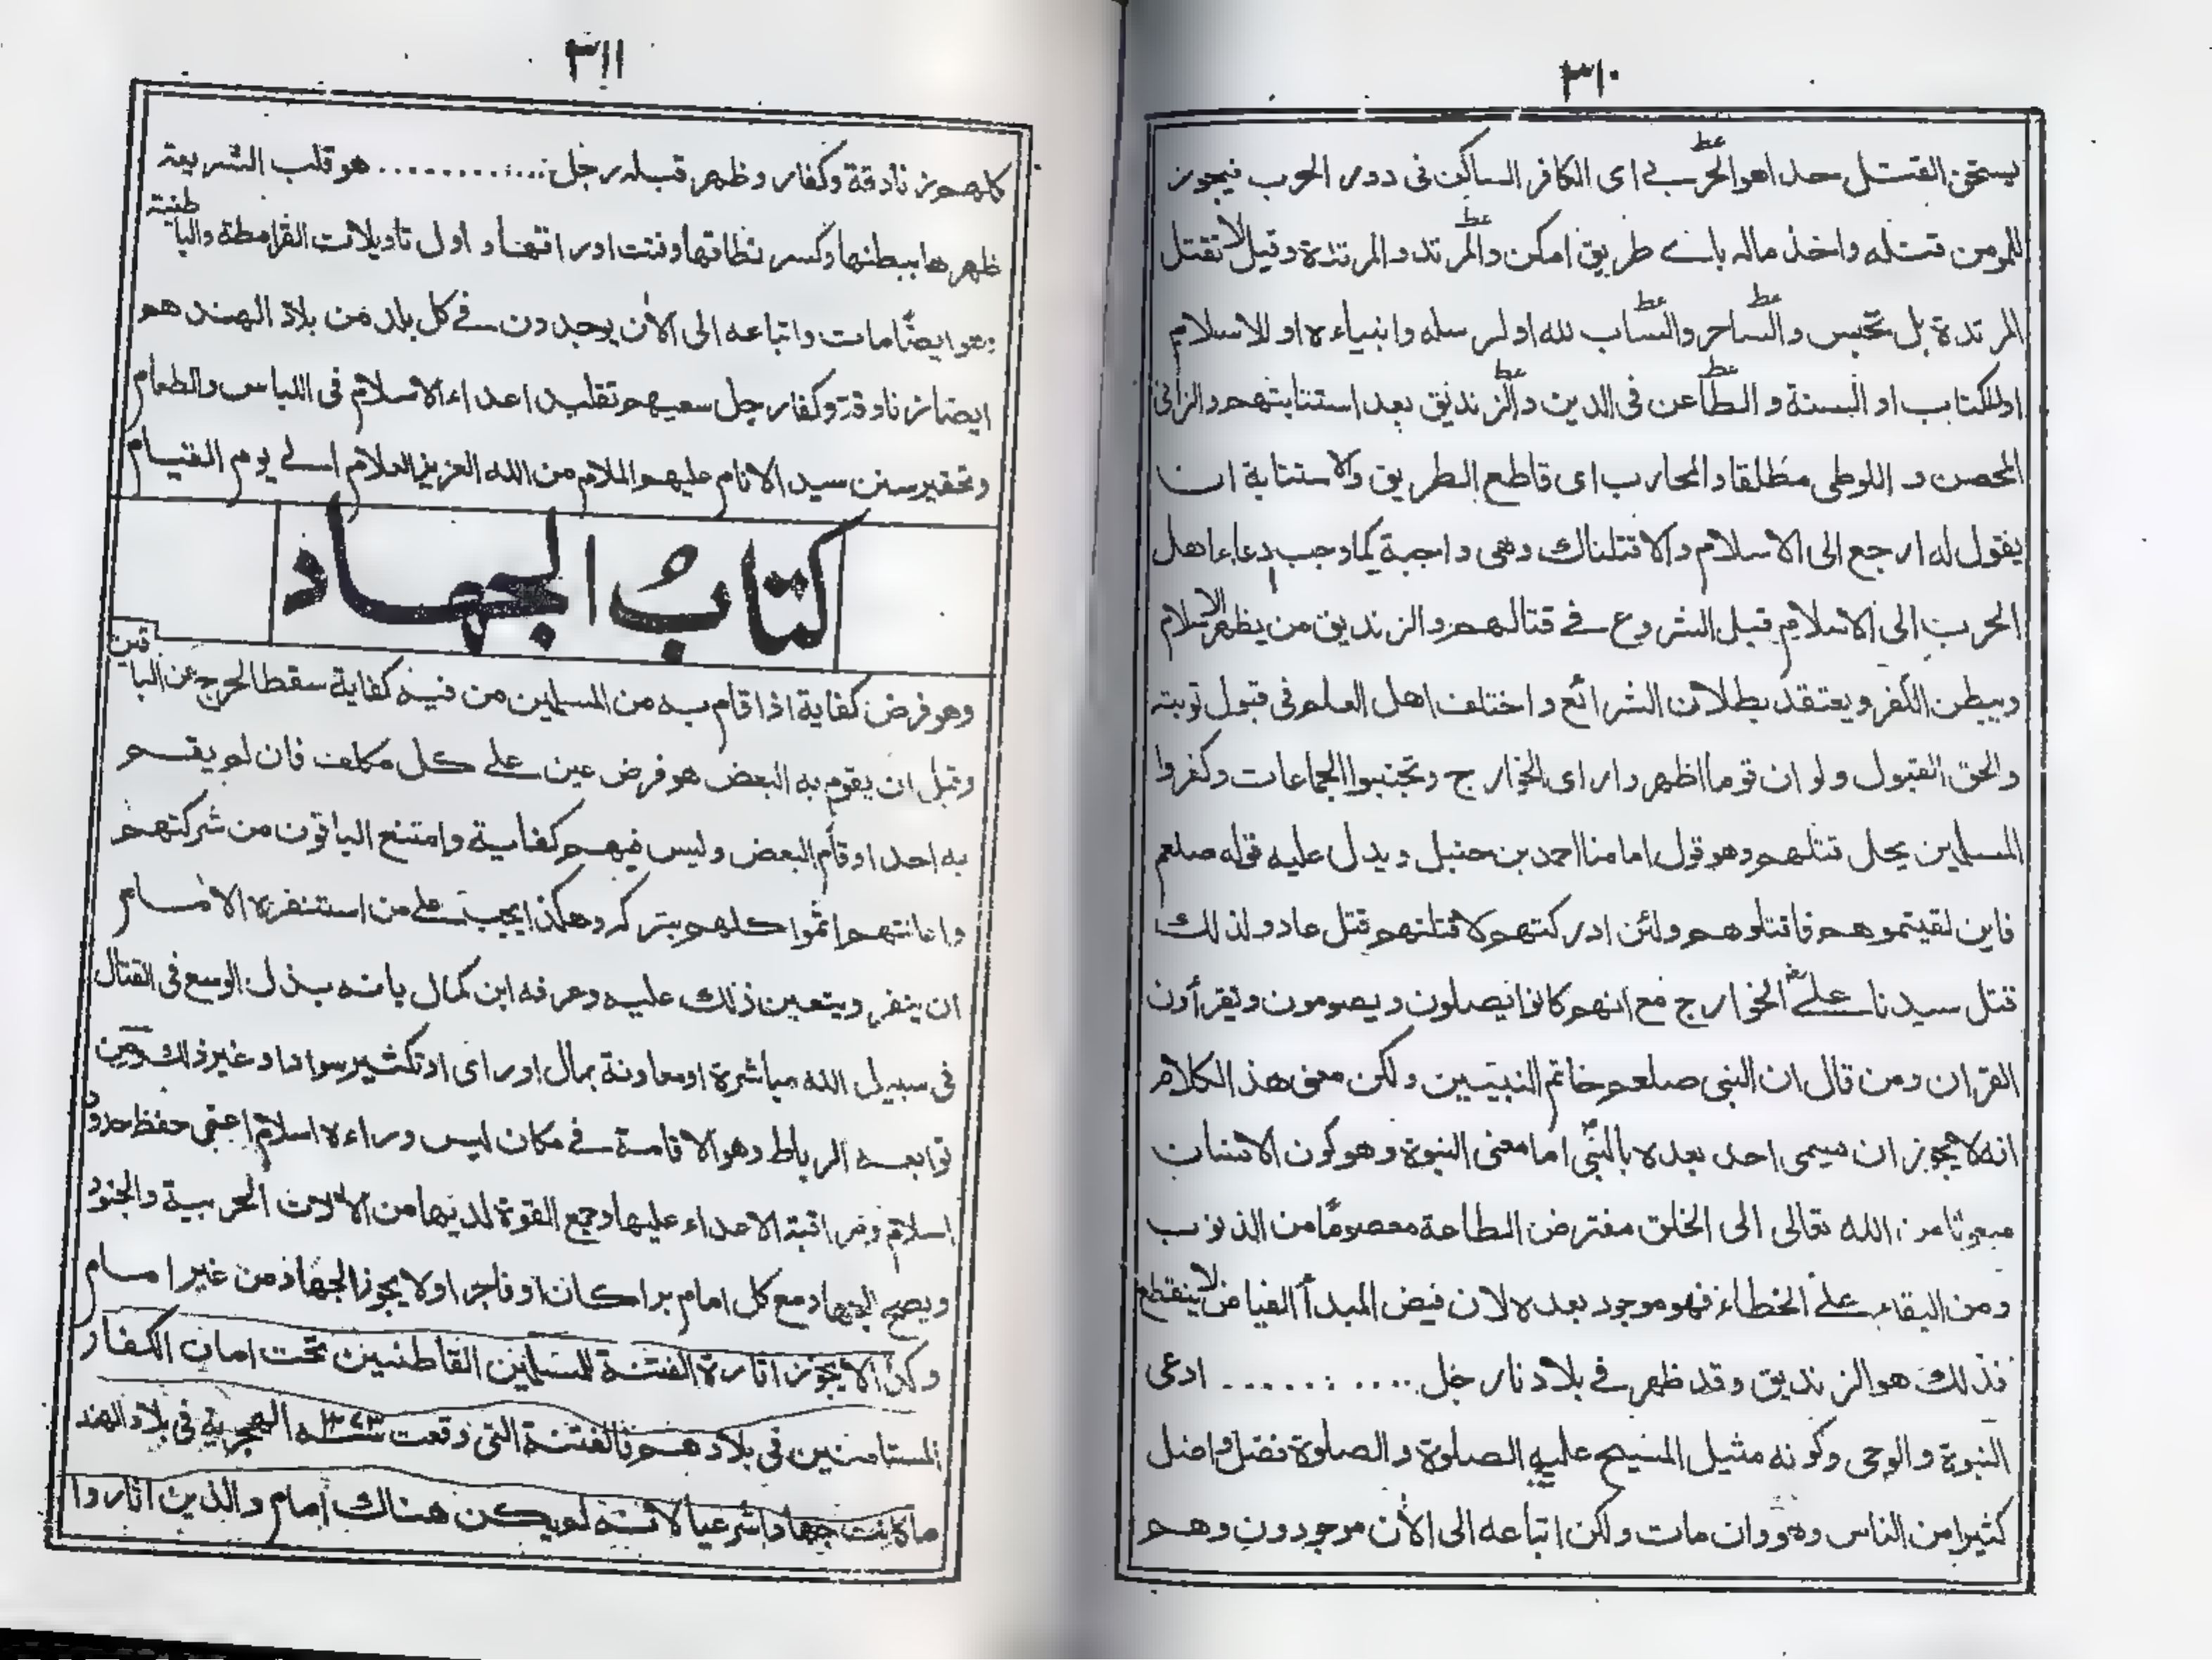 ٣١٠
يستحق القتل حدا هوالحربے ای الکافر الساکن فی دور الحرب فیجوز
للمومن قتله واخذ ماله بائے طریق امکن والمرتد والمرتدة وقیل لا تقتل
المرتدة بل تحبس والساحر والساب لله اولرسله وانبیاءه او للاسلام
اوللکتاب او السنة والطاعن فی الدین والزندیق بعد استتابتهم والزانی
المحصن و اللوطی مطلقا والمحارب ای قاطع الطریق والاستتابة ان
یقول له ارجع الی الاسلام والا قتلناك وهی واجبة کما وجب دعاء اهل
الحرب الی الاسلام قبل الشروع فے قتالهم والزندیق من یظهر الاسلام
ویبطن الکفر ویعتقد بطلان الشرائع واختلف اهل العلم فی قبول توبته
والحق القبول ولو ان قوما اظهروا رای الخوارج وتجنبوا الجماعات وکفروا
المسلمین یحل قتلهم وهو قول امامنا احمد بن حنبل ویدل علیه قوله صلعم
فاین لقیتموهم فاقتلوهم ولئن ادرکتهم لاقتلنهم قتل عاد ولذلك
قتل سیدنا علے الخوارج مع انهم کانوا یصلون ویصومون ویقرأون
القران ومن قال ان النبی صلعم خاتم النبیین ولکن معنی هذا الکلام
انه لا یجوز ان یسمی احد بعده بالنبی اما معنی النبوة وهو کون الانسان
مبعوثا من الله تعالی الی الخلق مفترض الطاعة معصوما من الذنوب
ومن البقاء علے الخطاء فهو موجود بعده لان فیض المبدأ الفیاض لا ینقطع
فذلك هو الزندیق وقد ظهر فے بلادنا رجل .......... ادعی
النبوة والوحی وکونه مثیل المسیح علیه الصلوة والصلوة فضل واضل
کثیرا من الناس وهو وان مات ولکن اتباعه الی الأن موجودون وهم
٣١١
کلهم زنادقة وکفار وظهر قبله رجل ............ هو قلب الشریعة
ظهرها ببطنها وکسر نطاقها وفتت اوراقها و اول تاویلات القرامطة والباطنیة
وهو ایضا مات واتباعه الی الأن یوجدون فے کل بلد من بلاد الهند هم
ایضا زنادقة وکفار جل سعیهم تقلید اعداء الاسلام فی اللباس والطعام
وتحقیر سنن سید الانام علیهم الملام من الله العزیز العلام الے یوم القیام
کتابُ الجهاد
وهو فرض کفایة اذا قام به من المسلمین من فیه کفایة سقط الحرج عن الباقین
وقبل ان یقوم به البعض هو فرض عین علے کل مکلف فان لم یقم
به احد او قام البعض ولیس فیهم کفایة وامتنع الباقون من شرکتهم
واعانتهم اثموا کلهم بترکه وهکذا یجب علے من استنفره الامام
ان ینفر ویتعین ذلك علیه وعرفه ابن کمال بانه بذل الوسع فی القتال
فی سبیل الله مباشرة او معاونة بمال او رای او تکثیر سواد او غیر ذلك ومن
توابعه الرباط وهو الاقامة فے مکان لیس وراءه اسلام اعنی حفظ حدود
اسلام ومراقبة الاعداء علیها وجمع القوة لدیها من الالات الحربیة والجنود
ویصح الجهاد مع کل امام برا کان او فاجرا ولا یجوز الجهاد من غیر امام
وکذا لا یجوز اثارة الفتنة للمسلمین القاطنین تحت امان الکفار
المستامنین فی بلادهم فالفتنة التی وقعت سنه ١٢٧٣ الهجریة فی بلاد الهند
ما کانت جهادا شرعیا لانه لم یکن هناك امام والذین اثاروا